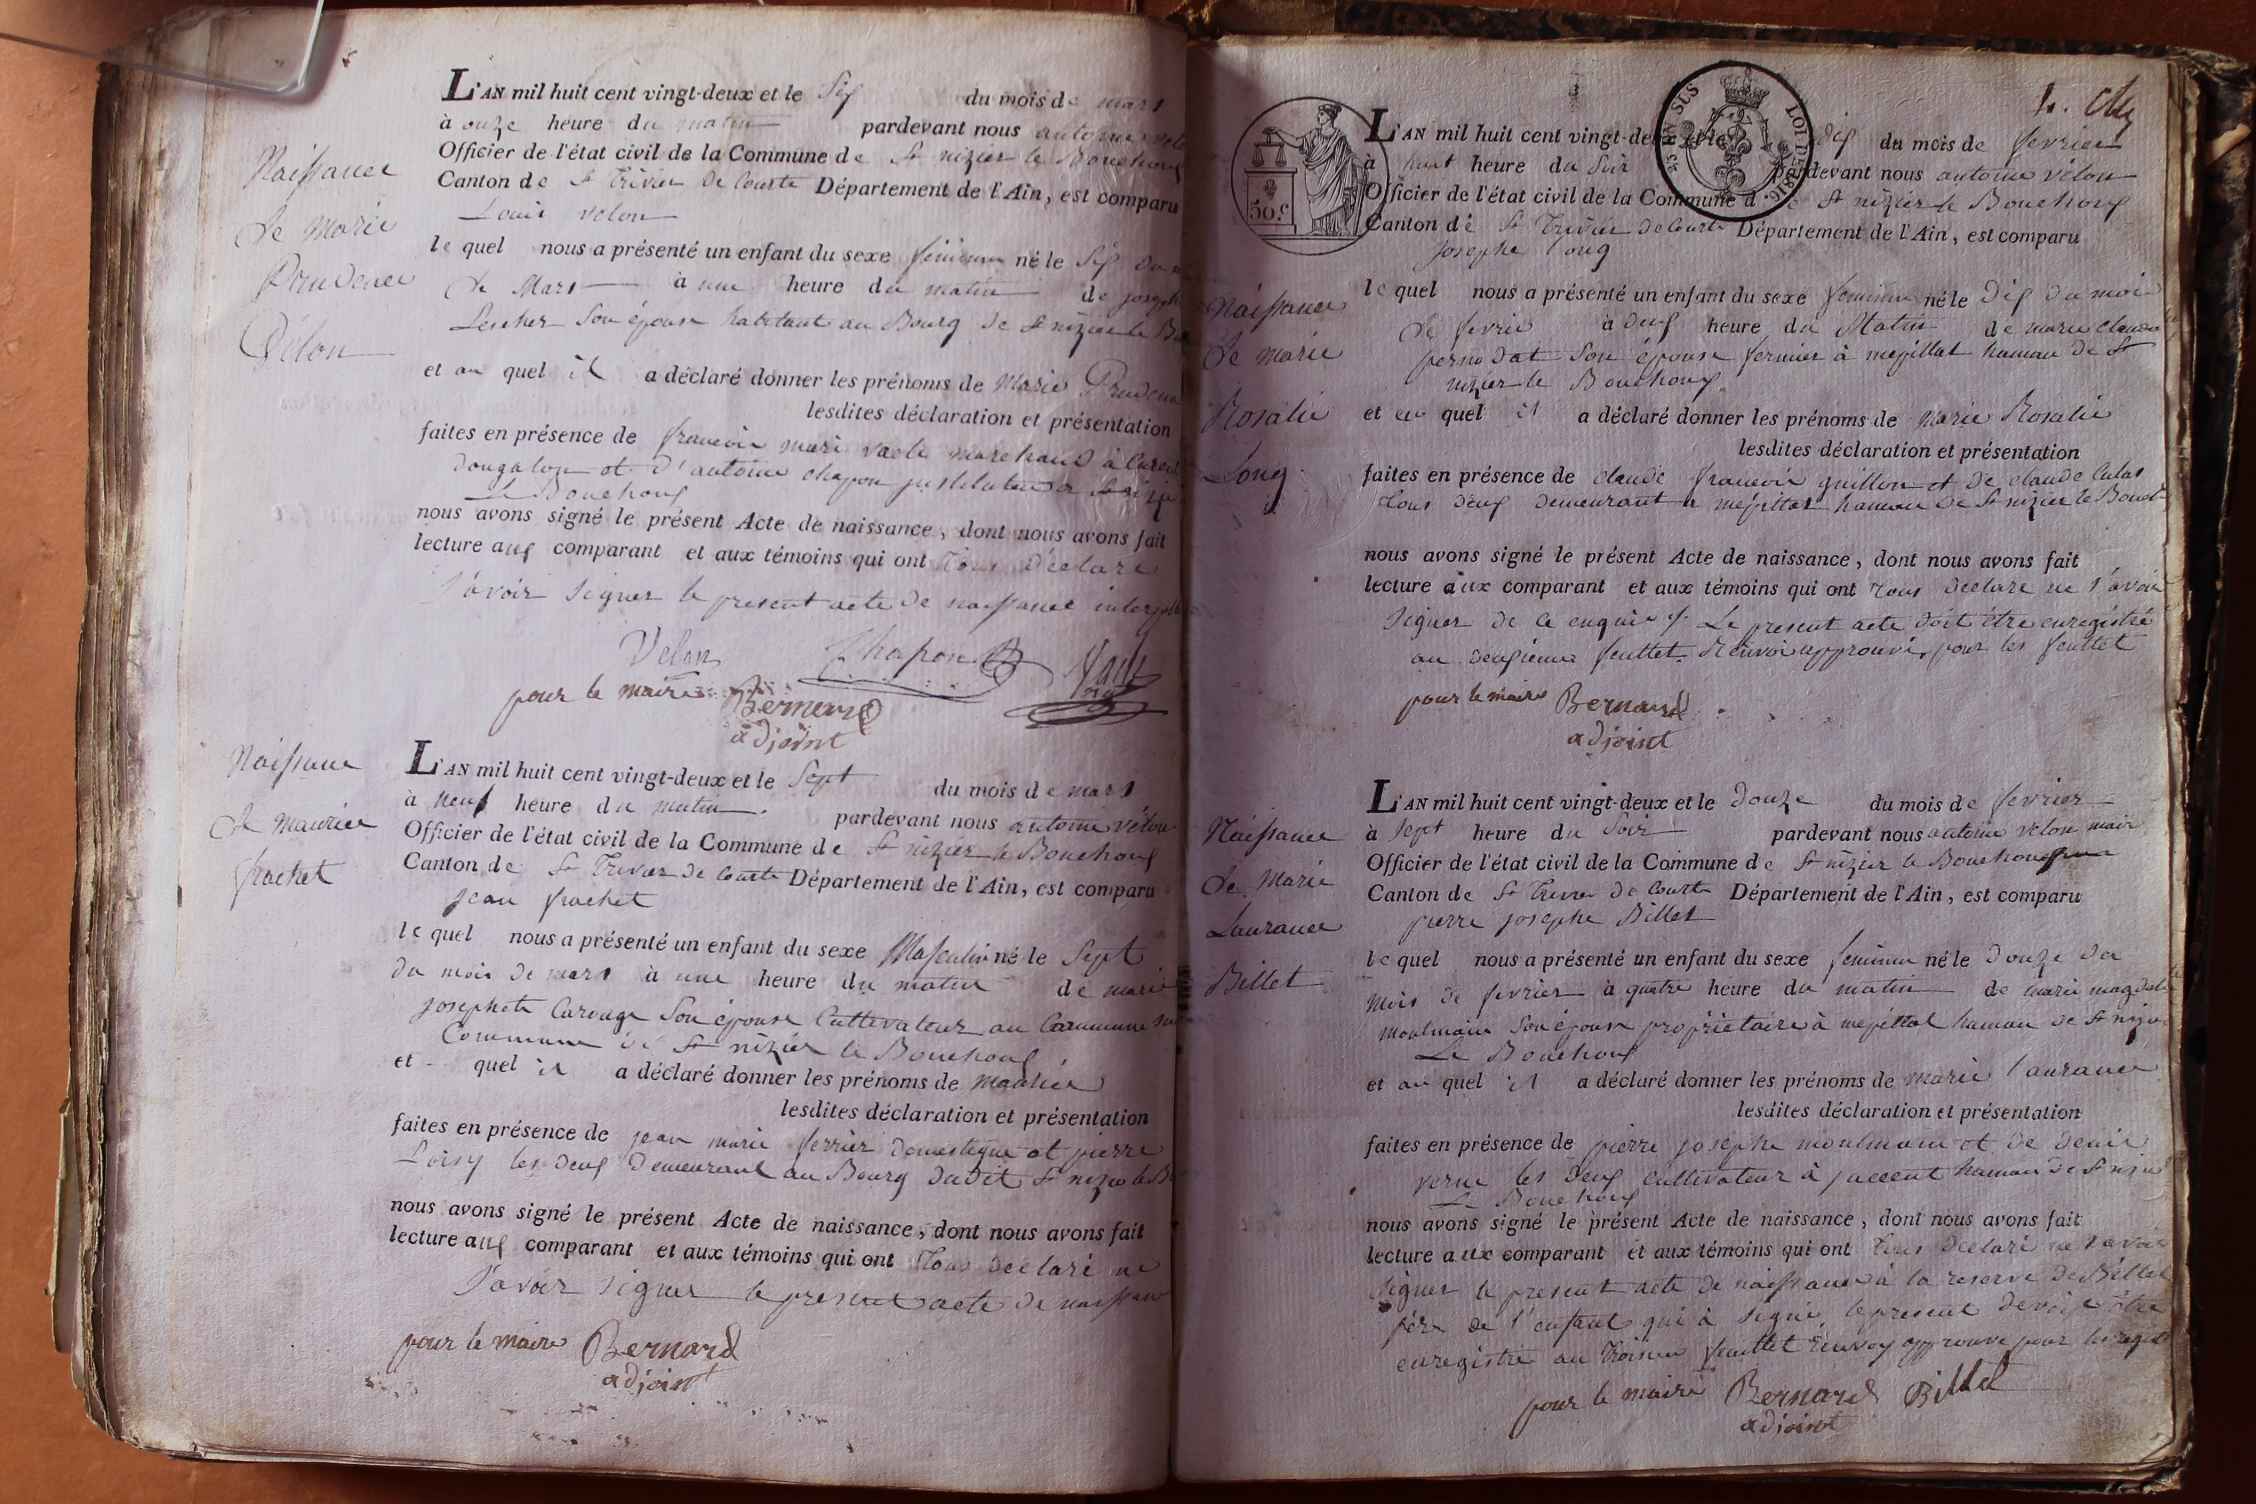 L'AN mil huit cent vingt-deux et le Six du mois de mars
à onze heure du matin pardevant nous antoine
Officier de l'état civil de la Commune de St nizier le Bouchoux
Canton de St Trivier De Courte Département de l'Ain, est comparu
Louis velon
le quel nous a présenté un enfant du sexe féminin né le Six du
de Mars à une heure du matin de joseph
Lescher Son épouse habitant au Bourg de St nizier le
et au quel il a déclaré donner les prénoms de Marie Prudence
lesdites déclaration et présentation
faites en présence de francois marie marchand à
et d'antoine chapon à St nizie
Le Bouchoux
nous avons signé le présent Acte de naissance, dont nous avons fait
lecture aux comparant et aux témoins qui ont Tous Déclaré
S'avoir Signer le present acte de naissance
Velon Chapon
pour le maire Bernard
adjoint
Naissance
de Marie
Prudence
Vélon
L'AN mil huit cent vingt-deux et le Sept du mois de mars
à neuf heure du matin pardevant nous antoine vélon
Officier de l'état civil de la Commune de St nizier le Bouchoux
Canton de St Trivier de Courte Département de l'Ain, est comparu
jean frachet
le quel nous a présenté un enfant du sexe Masculin né le Sept
du mois de mars à une heure du matin de marie
josephete Carouge Son épouse Cultivateur au Commune
Commune de St nizier le Bouchoux
et quel il a déclaré donner les prénoms de
lesdites déclaration et présentation
faites en présence de jean marie ferrier domestique et pierre
Loisy les deux demeurant au Bourg dudit St nizie le
nous avons signé le présent Acte de naissance, dont nous avons fait
lecture aux comparant et aux témoins qui ont Tous déclaré ne
S'avoir Signer le present acte de naissance
pour le maire Bernard
adjoint
Naissance
de maurice
frachet
L. 
LOI DE 1816
EN SUS
50.c
L'AN mil huit cent vingt-deux et le dix du mois de fevrier
à huit heure du Soir pardevant nous antoine vélon
Officier de l'état civil de la Commune de St nizier le Bouchoux
Canton de St Trivier de Courte Département de l'Ain, est comparu
josephe long
le quel nous a présenté un enfant du sexe feminin né le dix du mois
de fevrie à deux heure du Matin de marie claude
pernodat Son épouse fermier à mepillat hamau de St
nizier le Bouchoux
et au quel il a déclaré donner les prénoms de marie Rosalie
lesdites déclaration et présentation
faites en présence de claude francois guillon et de claude Culas
Tous deux demeurant a mépillat hamau de St nizier le Bouch
nous avons signé le présent Acte de naissance, dont nous avons fait
lecture aux comparant et aux témoins qui ont Tous declaré ne S'avoir
Signer de ce enquis Le present acte doit être enregistré
au deuxieme feuillet Renvoi approuvé pour les feuillet
pour le maire Bernard
adjoint
Naissance
de marie
Rosalie
Long
L'AN mil huit cent vingt-deux et le Douze du mois de fevrier
à Sept heure du Soir pardevant nous antoine velon mair
Officier de l'état civil de la Commune de St nizier le Bouchoux
Canton de St Trivier de Courte Département de l'Ain, est comparu
pierre josephe Billet
le quel nous a présenté un enfant du sexe feminin né le Douze du
Mois de fevrier à quatre heure du matin de marie magdal
moulmain Son épouse propriétaire à mepillat hamau de St nizie
Le Bouchoux
et au quel il a déclaré donner les prénoms de marie laurance
lesdites déclaration et présentation
faites en présence de pierre josephe moulmain et de denis
verne les deux cultivateur à hamau de St nizie
Le Bouchoux
nous avons signé le présent Acte de naissance, dont nous avons fait
lecture aux comparant et aux témoins qui ont Tous déclaré ne S'avoir
Signer le present acte de naissance à la reserve de Billet
père de l'enfant qui à Signé, le present devoit être
enregistré au Troisiem feuillet renvoy approuvé pour les
pour le maire Bernard Billet
adjoint
Naissance
de Marie
Laurance
Billet